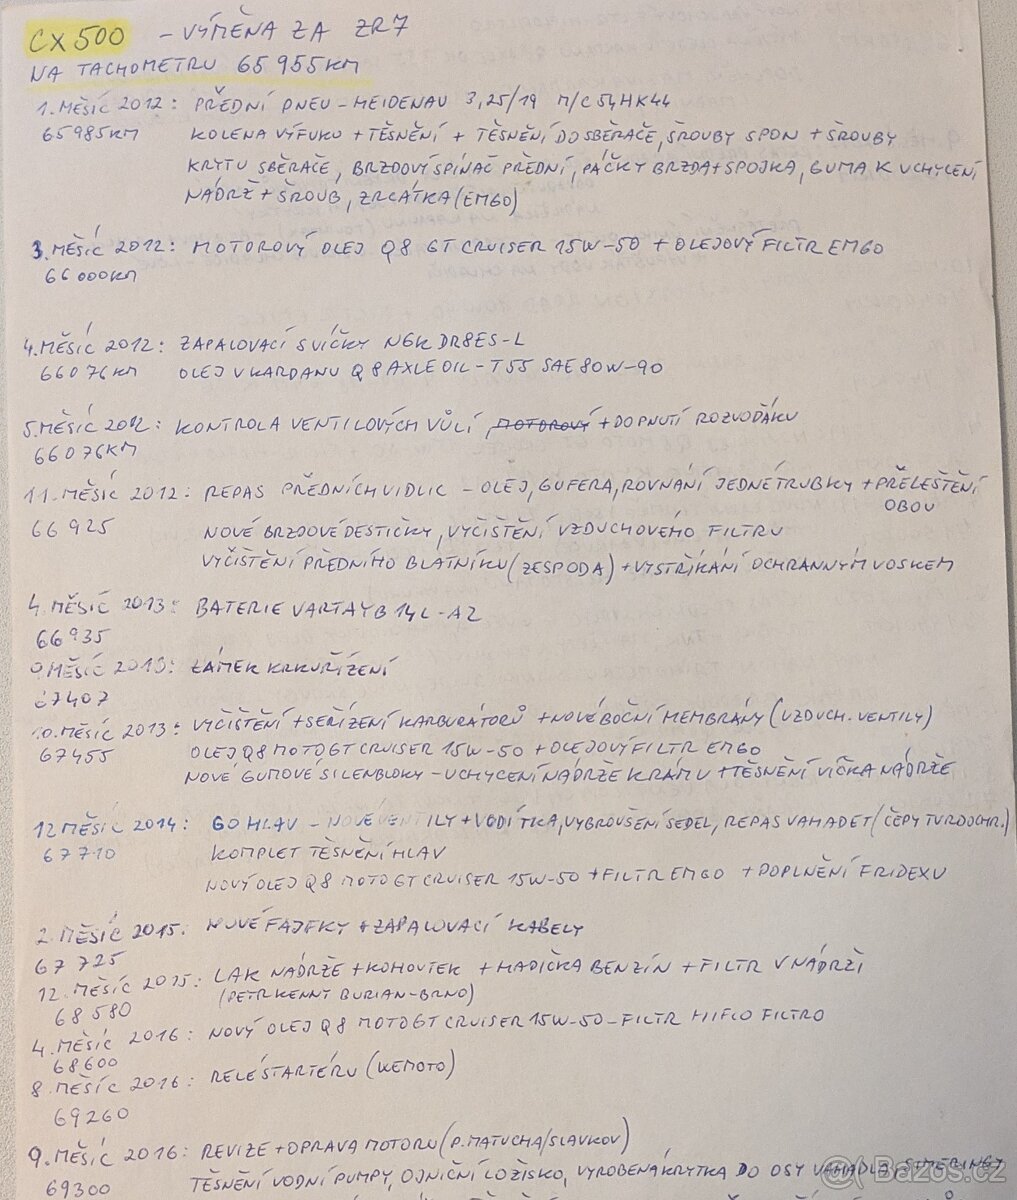 CX500 - VÝMĚNA ZA ZR7
NA TACHOMETRU 65 955KM
1. MĚSÍC 2012: PŘEDNÍ PNEU - HEIDENAU 3,25/19 M/C 54H K44
65985KM KOLENA VÝFUKU + TĚSNĚNÍ + TĚSNĚNÍ DO SBĚRAČE, ŠROUBY SPON + ŠROUBY
KRYTU SBĚRAČE, BRZDOVÝ SPÍNAČ PŘEDNÍ, PÁČKY BRZDA + SPOJKA, GUMA K UCHYCENÍ
NÁDRŽ + ŠROUB, ZRCÁTKA (EMGO)
3. MĚSÍC 2012: MOTOROVÝ OLEJ Q8 GT CRUISER 15W-50 + OLEJOVÝ FILTR EMGO
66 000KM
4. MĚSÍC 2012: ZAPALOVACÍ SVÍČKY NGK DR8ES-L
66076KM OLEJ V KARDANU Q8 AXLE OIL - T55 SAE 80W-90
5. MĚSÍC 2012: KONTROLA VENTILOVÝCH VŮLÍ, MOTOROVÝ + DOPNUTÍ ROZVOĎÁKU
66076KM
11. MĚSÍC 2012: REPAS PŘEDNÍCH VIDLIC - OLEJ, GUFERA, ROVNÁNÍ JEDNÉ TRUBKY + PŘELEŠTĚNÍ
OBOU
66 925 NOVÉ BRZDOVÉ DESTIČKY, VYČIŠTĚNÍ VZDUCHOVÉHO FILTRU
VYČIŠTĚNÍ PŘEDNÍHO BLATNÍKU (ZESPODA) + VYSTŘÍKÁNÍ OCHRANNÝM VOSKEM
4. MĚSÍC 2013: BATERIE VARTA YB14L-A2
66935
9. MĚSÍC 2013: ZÁMEK KRKU ŘÍZENÍ
67407
10. MĚSÍC 2013: VYČIŠTĚNÍ + SEŘÍZENÍ KARBURÁTORŮ + NOVÉ BOČNÍ MEMBRÁNY (VZDUCH. VENTILY)
67455 OLEJ Q8 MOTO GT CRUISER 15W-50 + OLEJOVÝ FILTR EMGO
NOVÉ GUMOVÉ SILENBLOKY - UCHYCENÍ NÁDRŽE K RÁMU + TĚSNĚNÍ VÍČKA NÁDRŽE
12 MĚSÍC 2014: GO HLAV - NOVÉ VENTILY + VODÍTKA, VYBROUŠENÍ SEDEL, REPAS VAHADET (ČEPY TVRDOCHR.)
67710 KOMPLET TĚSNĚNÍ HLAV
NOVÝ OLEJ Q8 MOTO GT CRUISER 15W-50 + FILTR EMGO + DOPLNĚNÍ FRIDEXU
2. MĚSÍC 2015: NOVÉ FAJFKY + ZAPALOVACÍ KABELY
67725
12. MĚSÍC 2015: LAK NÁDRŽE + KOHOUTEK + HADIČKA BENZÍN + FILTR V NÁDRŽI
68580 (PETR KENNY BURIAN - BRNO)
4. MĚSÍC 2016: NOVÝ OLEJ Q8 MOTO GT CRUISER 15W-50 - FILTR HIFLO FILTRO
68600
8. MĚSÍC 2016: RELÉ STARTÉRU (KEMOTO)
69260
9. MĚSÍC 2016: REVIZE + OPRAVA MOTORU (P. MATUCHA/SLAVKOV)
69300 TĚSNĚNÍ VODNÍ PUMPY, OJNIČNÍ LOŽISKO, VYROBENÁ KRYTKA DO OSY VAHADLA, SIMERINGY
Bazoš.cz